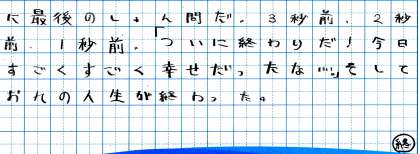 に最後のしゅん間だ。3秒前、2秒
前、1秒前、「ついに終わりだ!今日
すごくすごく幸せだったな…」そして
おれの人生が終わった。
終